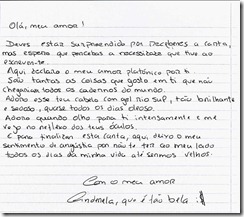 Olá, meu amor!
Deves estar surpreendido por receberes a carta,
mas espero que percebas a necessidade que tive ao
escrever-te.
Aqui declaro o meu amor platónico por ti.
São tantas as coisas que gosto em ti que não
chegariam todos os cadernos do mundo.
Adoro esse teu cabelo com gel rio Suf, tão brilhante
e sedoso, quase todos os dias oleoso.
Adoro quando olho para ti intensamente e me
vejo no reflexo dos teus óculos.
E para finalizar esta carta, aqui, deixo o meu
sentimento de angústia por não te ter ao meu lado
todos os dias da minha vida até sermos velhos.
Com o meu amor
que é tão bela!